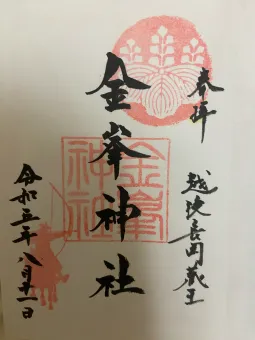 奉拝
越後長岡蔵王
金峯神社
金峯
神社
令和三年八月十一日